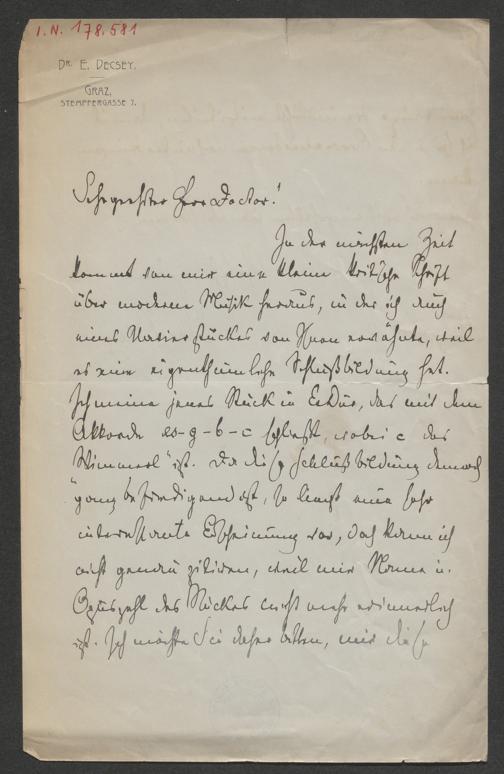 I.N. 178.581
DR. E. DECSEY.
GRAZ,
STEMPFERGASSE 7.
Sehr geehrter Herr Doctor!
In der nächsten Zeit
kommt von mir eine kleine kritische Schrift
über moderne Musik heraus, in der ich auch
eines Clavierstückes von Ihnen erwähnte, weil
es eine eigenthümliche Schlußbildung hat.
Ich meine jenes Stück in Es Dur, das mit dem
Akkorde es-g-b-c schließt, wobei c das
"Wimmerl" ist. Da diese Schlußbildung dennoch
ganz befriedigend ist, so liegt eine sehr
interessante Erscheinung vor, doch kann ich
nicht genau zitiren, weil mir Name u.
Opuszahl des Stückes nicht mehr erinnerlich
ist. Ich möchte Sie daher bitten, mir diese